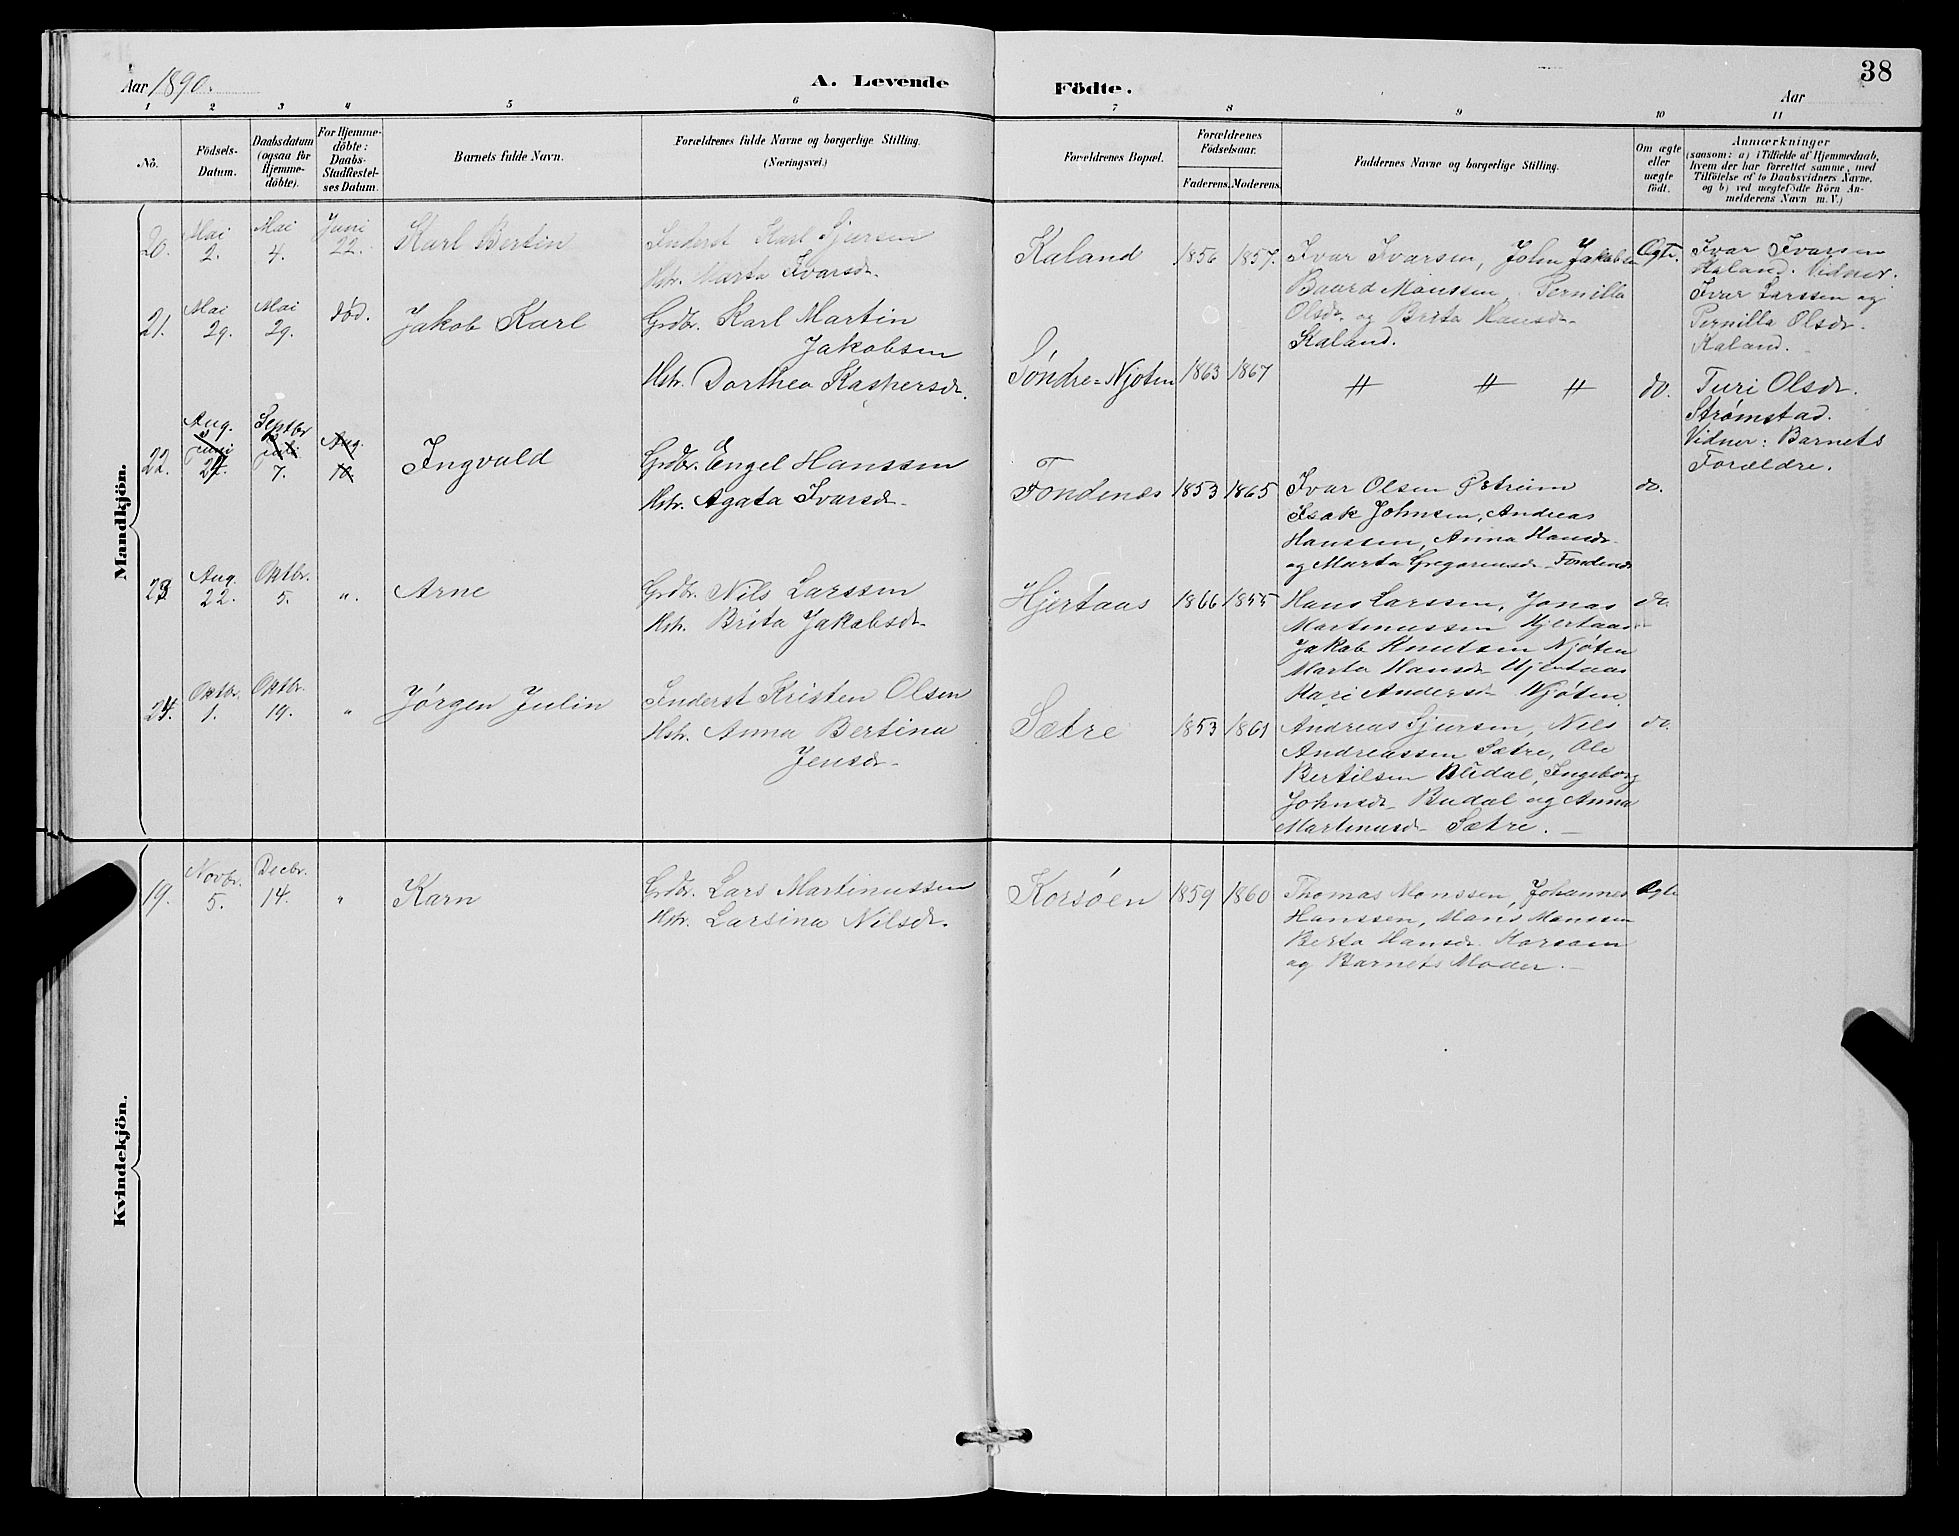 38
Aar 1890.
A. Levende Födte.
Aar
1 2 3 4 5 6 7 8 9 10 11
No.
Födsels-
Datum.
Daabsdatum
(ogsaa for
Hjemme-
döbte).
For Hjemme-
döbte:
Daabs-
Stadfæstel-
ses Datum.
Barnets fulde Navn.
Forældrenes fulde Navne og borgerlige Stilling.
(Næringsvei.)
Forældrenes Bopæl.
Forældrenes
Födselsaar.
Faderens. Moderens.
Faddernes Navne og borgerlige Stilling.
Om ægte
eller
uægte
födt.
Anmærkninger
(saasom: a) i Tilfælde af Hjemmedaab,
hvem der har forrettet samme, med
Tilföielse af to Daabsvidners Navne,
og b) ved uægtefödte Börn An-
melderens Navn m. V.)
Mandkjön.
20.
Mai
2.
Mai
4.
Juni
22.
Karl Bertin
Inderst Karl Sjursen
Hst. Marta Ivarsdr.
Kaland
1856 1857.
Ivar Ivarsen, John Jakobsen
Baard Monssen, Pernilla
Olsdr. og Brita Hansdr.
Kaland.
Ægte.
Ivar Ivarsen
Kaland. Vidner:
Ivar Larssen og
Pernilla Olsdr.
Kaland.
21.
Mai
29.
Mai
29.
død.
Jakob Karl
Grdbr. Karl Martin
Jakobsen
Hst. Dorthea Kaspersdr.
Søndre=Njøten
1863 1867
〃 〃 〃
do.
Turi Olsdr.
Strømstad.
Vidner: Barnets
Forældre.
22.
Aug.
Juni
Septbr
Juli
7.
Aug.
10
Ingvald
Grdbr. Engel Hanssen
Hst. Agata Ivarsdr.
Fondenes
1853 1865
Ivar Olsen
Isak Johnsen, Andreas
Hanssen, Anna Hansdr.
og Marta Gregoriusdr. Fondenes
do.
23
Aug.
22.
Oktbr.
5.
".
Arne
Grdbr. Nils Larssen
Hst. Brita Jakobsdr.
Hjertaas
1866 1855
Hans Larssen, Jonas
Martinussen Hjertaas
Jakob Knutsen Njøten
Marta Hansdr. Hjertaas
Kari Andersdr. Njøten.
do.
24.
Oktbr.
1.
Oktbr.
19.
"
Jørgen Julin
Inderst Kristen Olsen
Hst. Anna Bertina
Jensdr.
Sætre
1853 1861
Andreas Sjursen, Nils
Andreassen Sætre, Ole
Bertilsen Budal, Ingeborg
Johnsdr. Budal og Anna
Martinusdr. Sætre.
do.
Kvindekjön.
19.
Novbr.
5.
Decbr.
14.
"
Karn
Grdbr. Lars Martinussen
Hst. Larsina Nilsdr.
Korsøen
1859 1860
Thomas Monssen, Johannes
Hanssen, Mons Monssen
Berta Hansdr. Korsøen
og Barnets Moder.
Ægte